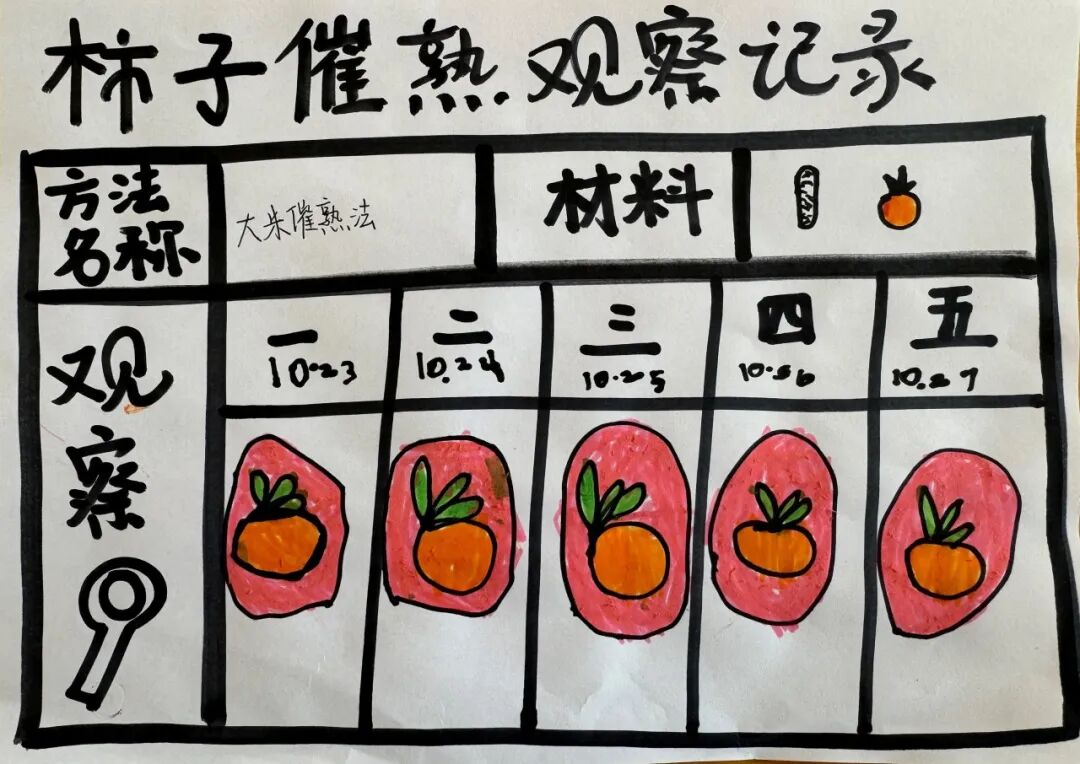 柿子催熟观察记录
方法
名称
大朱催熟法
材料
观察
一
10.23
二
10.24
三
10.25
四
10.26
五
10.27